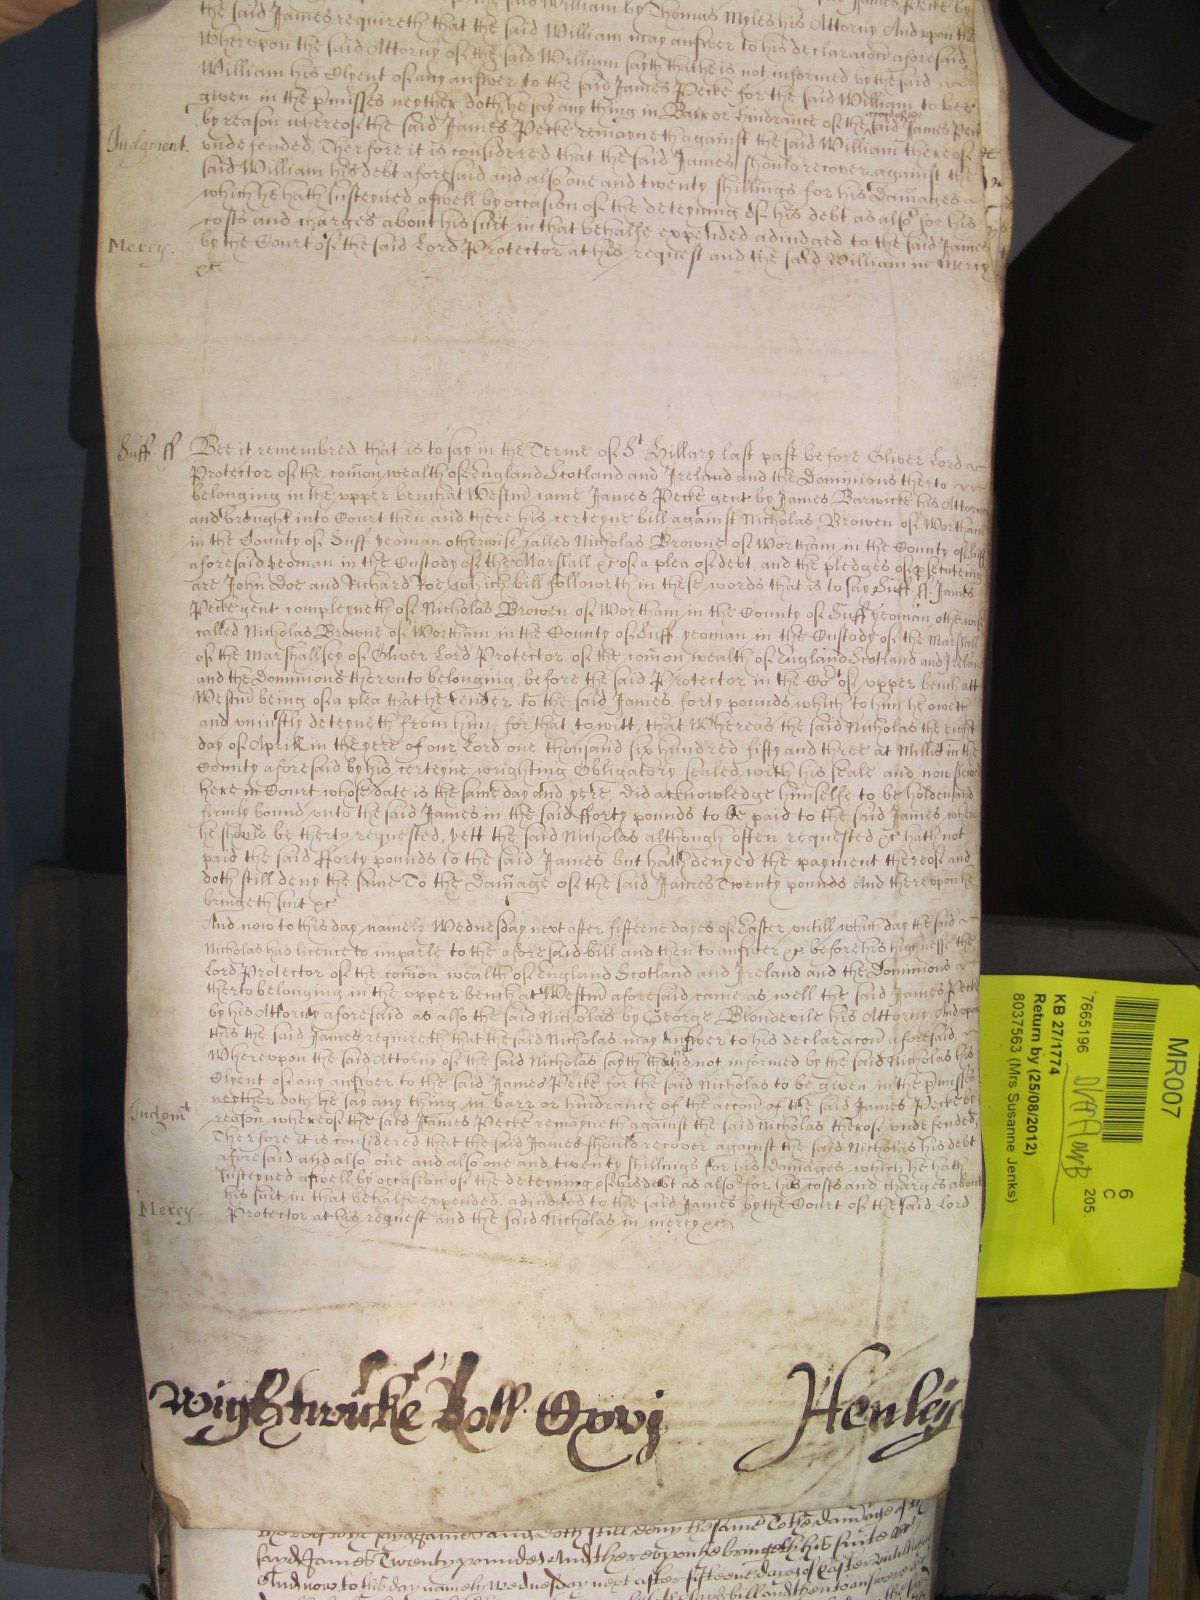 the said James requireth that the said William may answer to his declaracon aforesaid,
Wherevpon the said Attorny of the said William sayth that he is not informed by the said
William his Clyent of any answer to the said James Pecke for the said William to bee
given in the pmisses neyther doth he say any thing in Barr or hindrance of the said James Peck
by reason whereof the said James Pecke remayneth against the said William thereof
Judgment. vndefended, Therfore it is considered that the said James should recover against the
said William his debt aforesaid and also one and twenty shillings for his Damages
which he hath susteyned aswell by occasion of the deteyning of his debt as also for his
costs and charges about his suit in that behalfe expended adiudged to the said James
Mercy. by the Court of the said Lord Protector at his request and the said William in Mercy
&c
Suff. ff Bee it remembred that is to say in the Terme of St Hillary last past before Oliver Lord
Protector of the comon wealth of England Scotland and Ireland and the Dominions therto
belonging in the vpper bench at Westm came James Pecke gent by James Barwicke his Attorny
and brought into Court then and there his certeyne bill against Nicholas Browen of Wortham
in the County of Suff yeoman otherwise called Nicholas Browne of Wortham in the County of Suff
aforesaid yeoman in the Custody of the Marshall &c of a plea of debt, and the pledges of psecuteing
are John Doe and Richard Roe which bill followeth in these words that is to say Suff. ff. James
Pecke gent compleyneth of Nicholas Browen of Wortham in the County of Suff yeoman otherwise
called Nicholas Browne of Wortham in the County of Suff yeoman in the Custody of the Marshall
of the Marshallsey of Oliver Lord Protector of the comon wealth of England Scotland and Ireland
and the Dominions therevnto belonging, before the said Protector in the Cort of vpper bench att
Westm being of a plea that he render to the said James forty pounds which to him he oweth
and vniustly deteyneth from him, for that to witt, that Whereas the said Nicholas the eight
day of Aprill in the yere of our Lord one thousand six hundred fifty and three at in the
County aforesaid by his certeyne wrighting Obligatory sealed with his seale and now shewed
here in Court whose date is the same day and yere, did acknowledge himselfe to be holden and
firmly bound vnto the said James in the said fforty pounds to be paid to the said James, when
he should be therto requested, yett the said Nicholas although often requested &c hath not
paid the said fforty pounds to the said James but hath denyed the payment thereof and
doth still deny the same To the Damage of the said James Twenty pounds And therevpon he
bringeth suit &c
And now to this day, namely Wednesday next after fifteene dayes of Easter vntill which day the said
Nicholas had licence to imparle to the aforesaid bill and then to answer &c before his highnesse the
Lord Protector of the comon wealth of England Scotland and Ireland and the Dominions
therto belonging in the vpper bench at Westm aforesaid came as well the said James Pecke
by his Attorny aforesaid as also the said Nicholas by George Blondevile his Attorny And vpon
this the said James requireth that the said Nicholas may answer to his declaracon aforesaid
Wherevpon the said Attorny of the said Nicholas sayth that he is not informed by the said Nicholas his
Clyent of any answer to the said James Pecke for the said Nicholas to be given in the pmisses
neyther doth he say any thing in barr or hindrance of the accon of the said James Pecke by
Judgmt reason whereof the said James Pecke remayneth against the said Nicholas therof vndefended,
Therfore it is considered that the said James should recover against the said Nicholas his debt
aforesaid and also one and also one and twenty shillings for his damages, which he hath
susteyned aswell by occasion of the deteyning of his debt as also for his costs and charges about
his suit in that behalfe expended, adiudged to the said James by the Court of the said Lord
Mercy Protector at his request and the said Nicholas in mercy &c
Wightwicke Roll Cxvj Henley
doth still deny the same To the damage of the
said James Twenty pounde And therevpon he bringeth his suite &c
And now to this day namely Wednesday next after fifteene dayes of Easter vntill
MR007
6
C
7665196
205.
KB 27/1774
Return by (25/08/2012)
8037563 (Mrs Susanne Jenks)